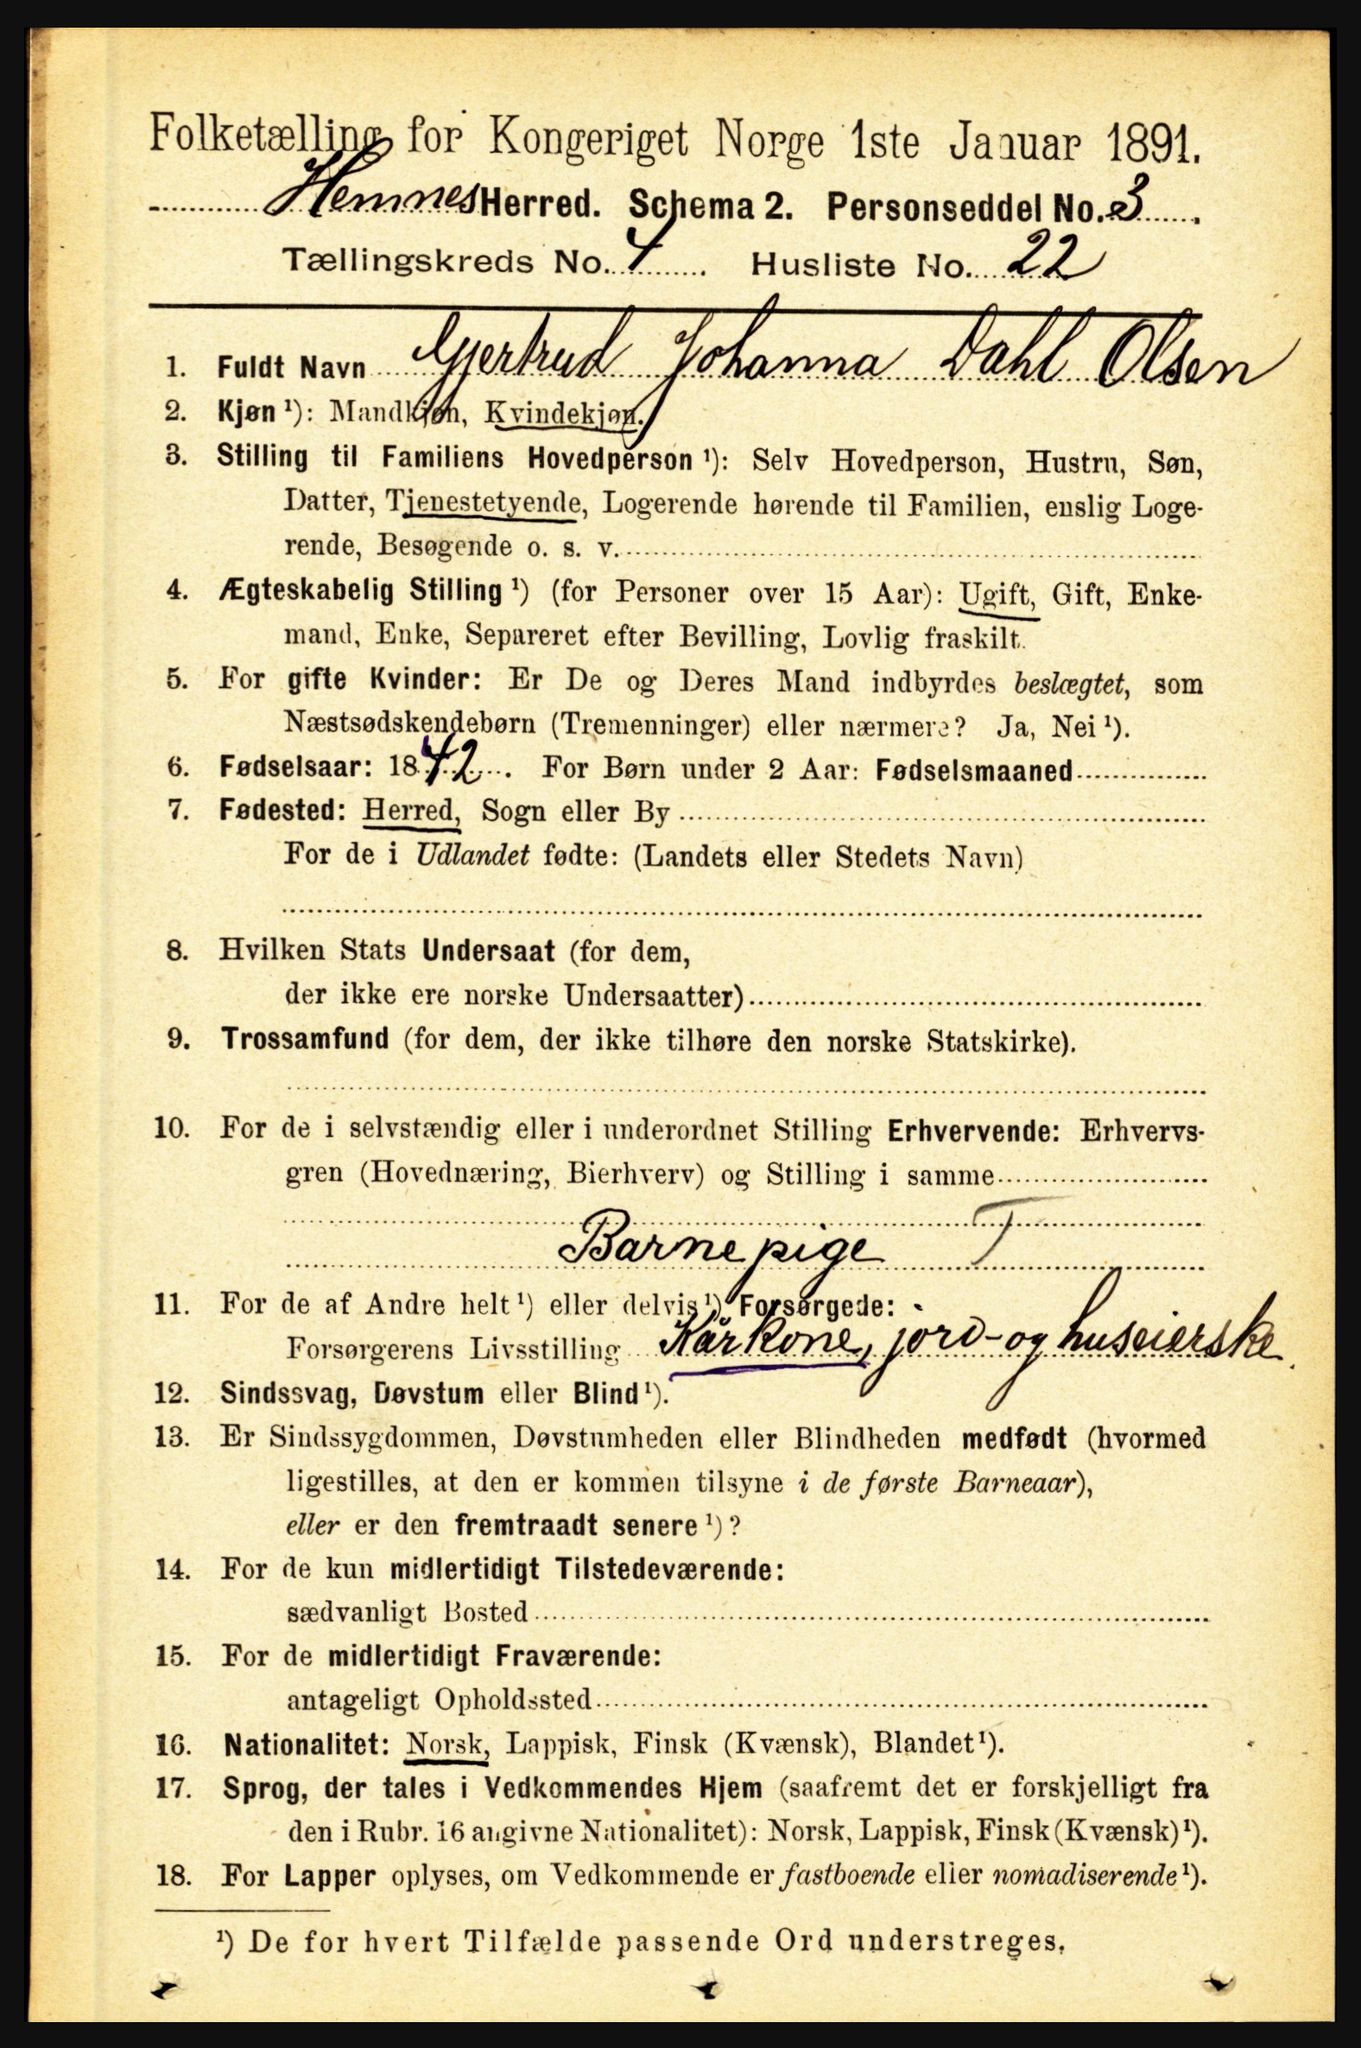 Folketælling for Kongeriget Norge 1ste Januar 1891.
Hemnes Herred. Schema 2. Personseddel No. 3
Tællingskreds No. 4 Husliste No. 22
1. Fuldt Navn Gjertrud Johanna Dahl Olsen
2. Kjøn ¹): Mandkjøn, Kvindekjøn.
3. Stilling til Familiens Hovedperson ¹): Selv Hovedperson, Hustru, Søn,
Datter, Tjenestetyende, Logerende hørende til Familien, enslig Loge-
rende, Besøgende o. s. v.
4. Ægteskabelig Stilling ¹) (for Personer over 15 Aar): Ugift, Gift, Enke-
mand, Enke, Separeret efter Bevilling, Lovlig fraskilt.
5. For gifte Kvinder: Er De og Deres Mand indbyrdes beslægtet, som
Næstsødskendebørn (Tremenninger) eller nærmere? Ja, Nei ¹).
6. Fødselsaar: 1842. For Børn under 2 Aar: Fødselsmaaned
7. Fødested: Herred, Sogn eller By
For de i Udlandet fødte: (Landets eller Stedets Navn)
8. Hvilken Stats Undersaat (for dem,
der ikke ere norske Undersaatter)
9. Trossamfund (for dem, der ikke tilhøre den norske Statskirke).
10. For de i selvstændig eller i underordnet Stilling Erhvervende: Erhvervs-
gren (Hovednæring, Bierhverv) og Stilling i samme
Barnepige T
11. For de af Andre helt ¹) eller delvis ¹) Forsørgede:
Forsørgerens Livsstilling Kårkone, jord- og huseierske
12. Sindssvag, Døvstum eller Blind ¹).
13. Er Sindssygdommen, Døvstumheden eller Blindheden medfødt (hvormed
ligestilles, at den er kommen tilsyne i de første Barneaar),
eller er den fremtraadt senere ¹)?
14. For de kun midlertidigt Tilstedeværende:
sædvanligt Bosted
15. For de midlertidigt Fraværende:
antageligt Opholdssted
16. Nationalitet: Norsk, Lappisk, Finsk (Kvænsk), Blandet ¹).
17. Sprog, der tales i Vedkommendes Hjem (saafremt det er forskjelligt fra
den i Rubr. 16 angivne Nationalitet): Norsk, Lappisk, Finsk (Kvænsk) ¹).
18. For Lapper oplyses, om Vedkommende er fastboende eller nomadiserende ¹).
¹) De for hvert Tilfælde passende Ord understreges.